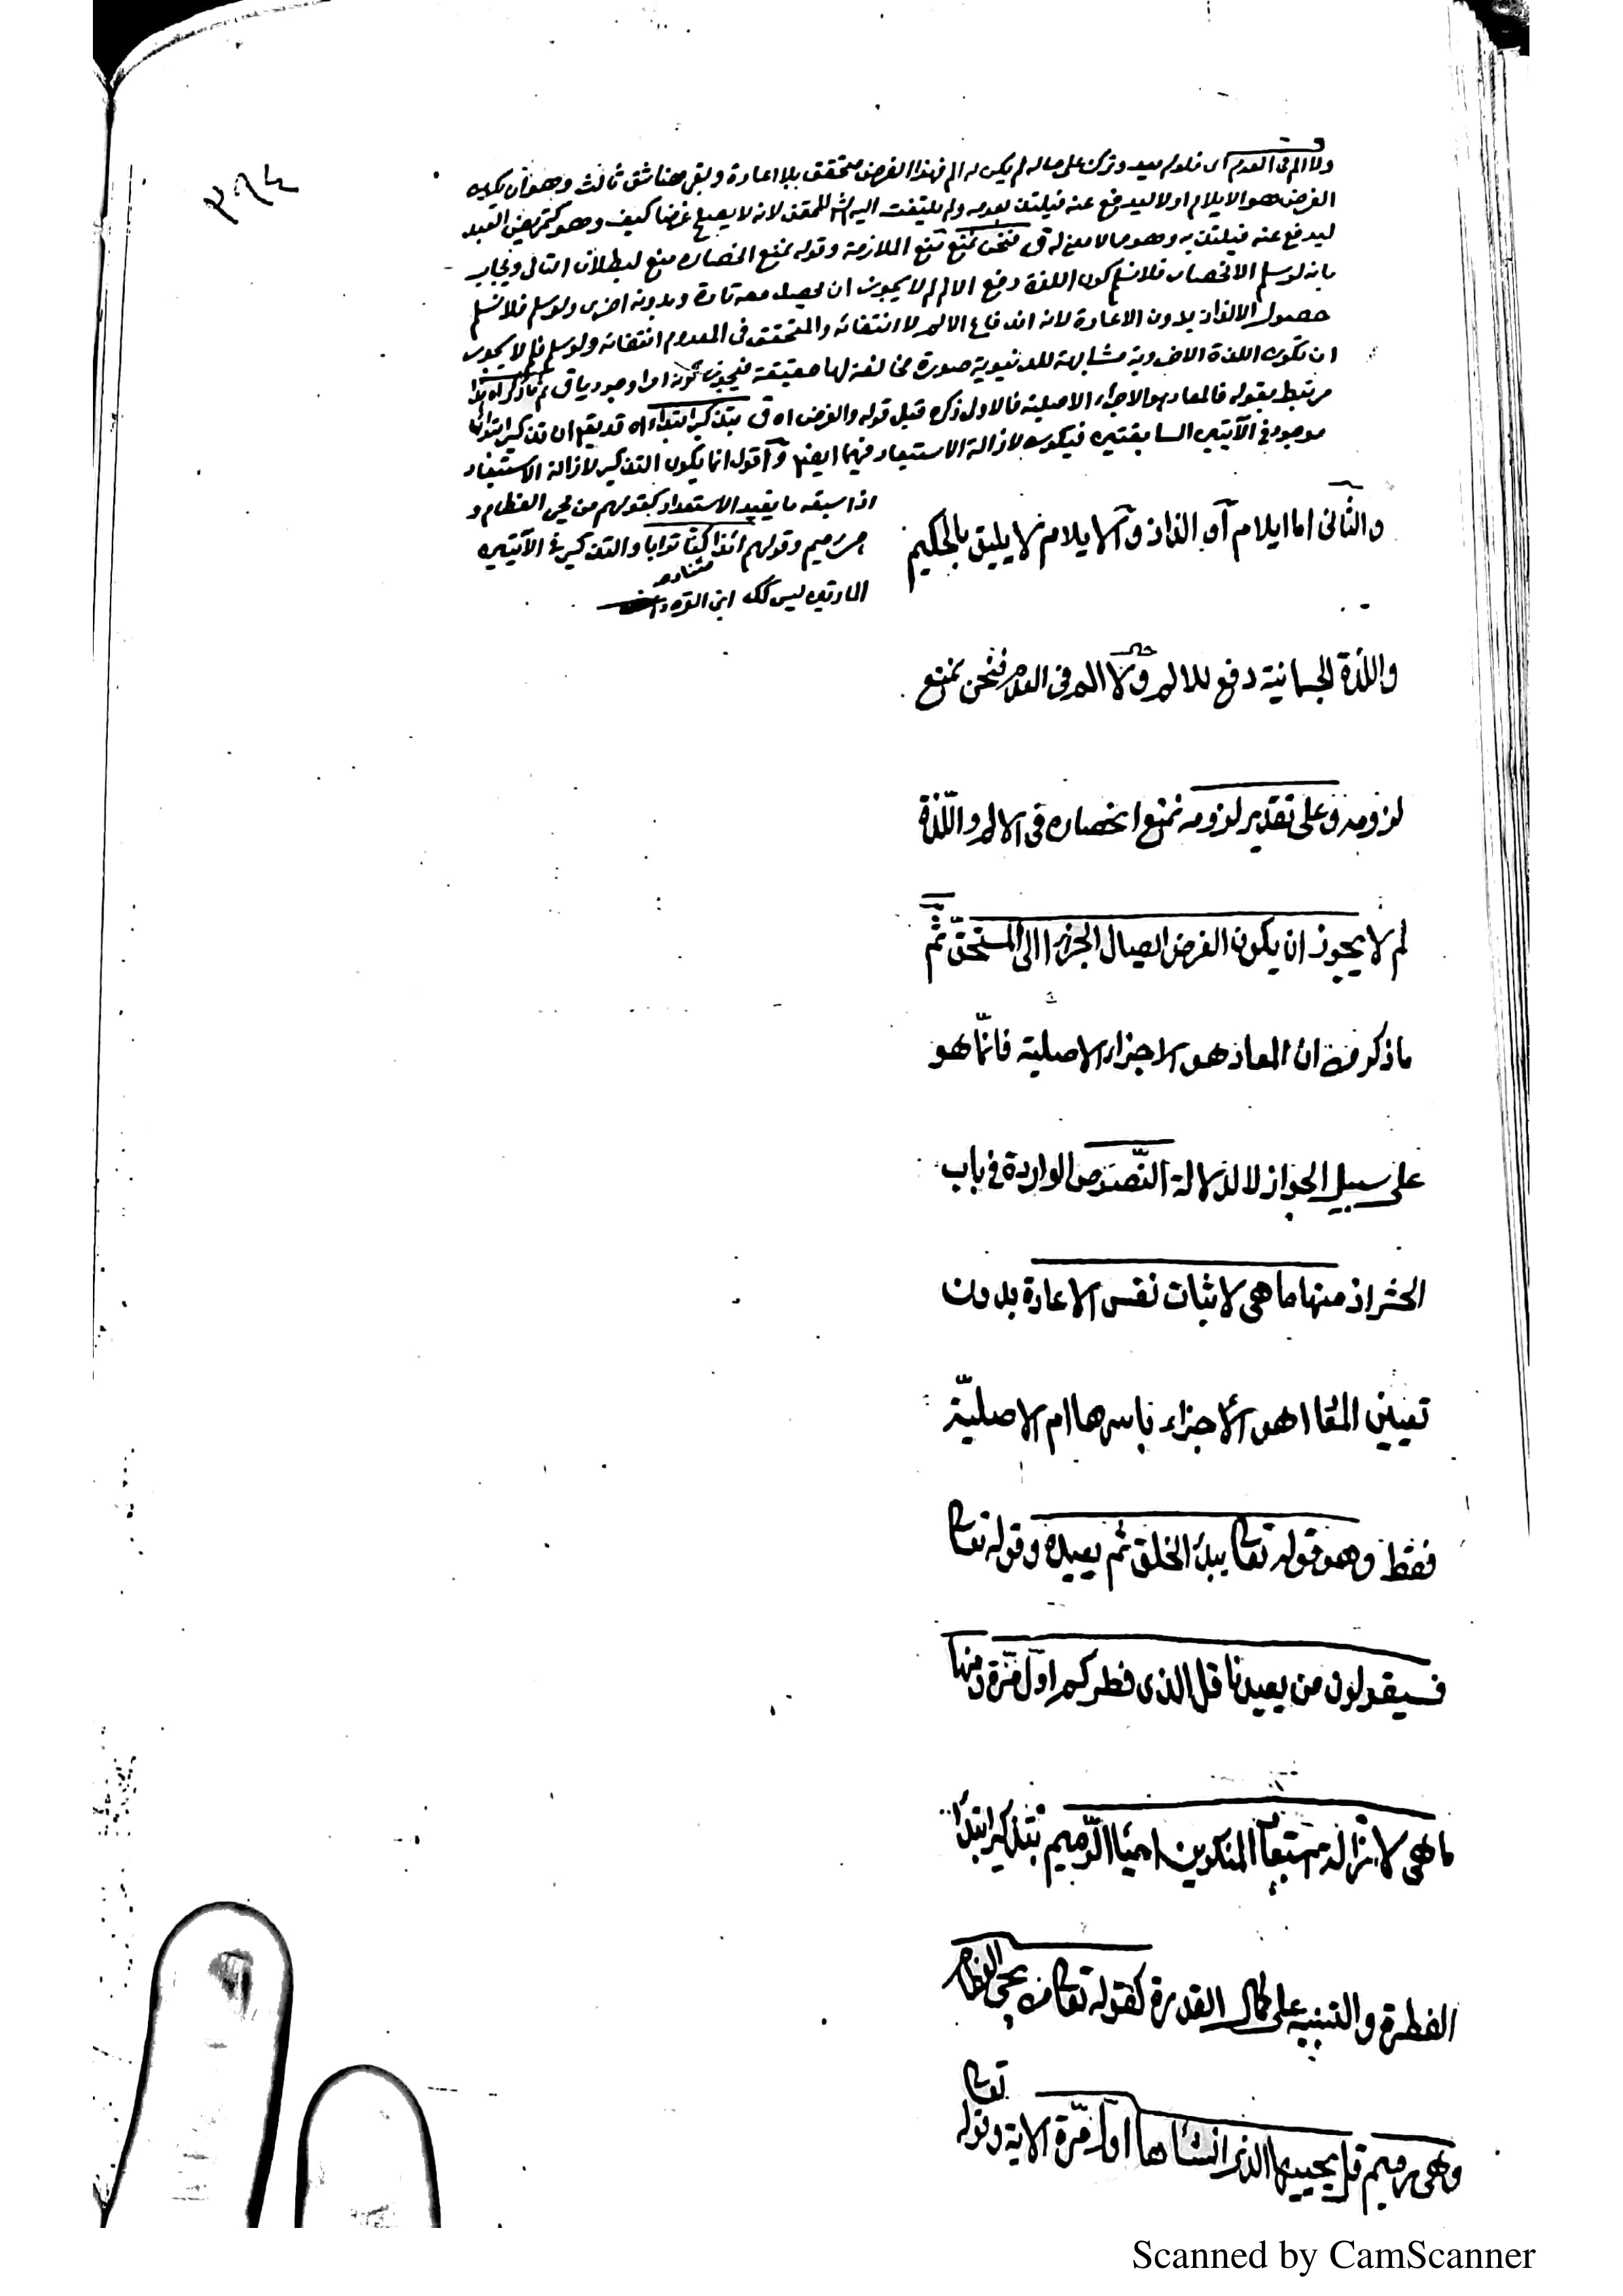 ٣٩٤
ولا الم فى العدم اى فلو لم يعيد وترك على حاله لم يكن له الم فهذا الغرض متحقق بلا اعادة وبقى ههنا شق ثالث وهو ان يكون
الغرض هو الايلام اولا ليدفع عنه فيلتذ بعده ولم يلتفت اليه المحقق لانه لا يصلح غرضا كيف وهو كتمريض العبد
ليدفع عنه فيلتذ به وهو مما لا معنى له ق فنحن نمنع منع الملازمة وقوله نمنع انحصاره منع لبطلان التالى ويجاب
بانه لو سلم الانحصار فلا نسلم كون اللذة دفع الالم لم لا يجوز ان يحصل معه تارة وبدونه اخرى ولو سلم فلا نسلم
حصول الالذاذ بدون الاعادة لانه اندفاع الالم لا انتفائه والمتحقق فى المعدوم انتفائه ولو سلم فلم لا يجوز
ان تكون اللذة الاخروية مشابهة للدنيوية صورة مخالفة لها حقيقة فيجوز كونه امرا وجوديا ق ثم ما ذكر اه هذا
مرتبط بقوله فالمعاد هو الاجزاء الاصلية فالاولى ذكره قبل قوله والغرض اه ق بتذكير ابتداء اه قد يقع ان تذكير ابتداء
موجود فى الآيتين السابقتين فيكون لازالة الاستبعاد فيهما ايضا واقول انما يكون التذكير لازالة الاستبعاد
اذا سبقه ما يفيد الاستبعاد كقولهم من يحي العظام و
هى رميم وقولهم ائذا كنا ترابا والتذكير فى الآيتين
المارتين ليس كك ابن القره داغى
والثانى اما ايلام او الذاذ والايلام لا يليق بالحكيم
واللذة الجسمانية دفع للالم ولا الم فى العدم فنحن نمنع
لزومه وعلى تقدير لزومه نمنع انحصاره فى الالم واللّذة
لم لا يجوز ان يكون الغرض ايصال الجزاء الى المستحقّ ثمّ
ما ذكر من ان المعاد هو الاجزاء الاصلية فانّما هو
على سبيل الجواز لا لدلالة النّصوص الواردة فى باب
الحشر اذ منها ما هى لاثبات نفس الاعادة بدون
تعيين المعاد اهو الاجزاء باسرها ام الاصليّة
فقط وهو قوله تعا يبدأ الخلق ثم يعيده وقوله تعا
فسيقولون من يعيدنا قل الذى فطركم اوّل مرّة ومنها
ما هى لازالة استبعاد المنكرين احياء الرّميم بتذكير ابتداء
الفطرة والتنبيه على كمال القدرة كقوله تعا من يحي العظام
وهى رميم قل يحييها الذى انشاها اول مرّة الاية وقوله تعا
Scanned by CamScanner